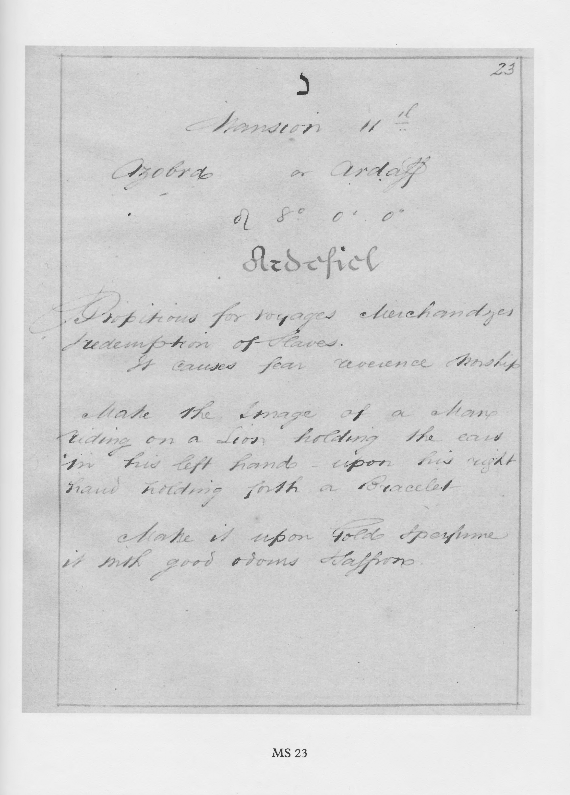 23
כ
Mansion 11th
Azobra or Ardaff
♌ 8° 0' 0"
Ardesiel
Propitious for voyages Merchandzes
redemption of Slaves.
It causes fear reverence Worship
Make the Image of a Man
riding on a Lion holding the ears
in his left hand - upon his right
hand holding forth a Bracelet
Make it upon Gold & perfume
it with good odours Saffron.
MS 23